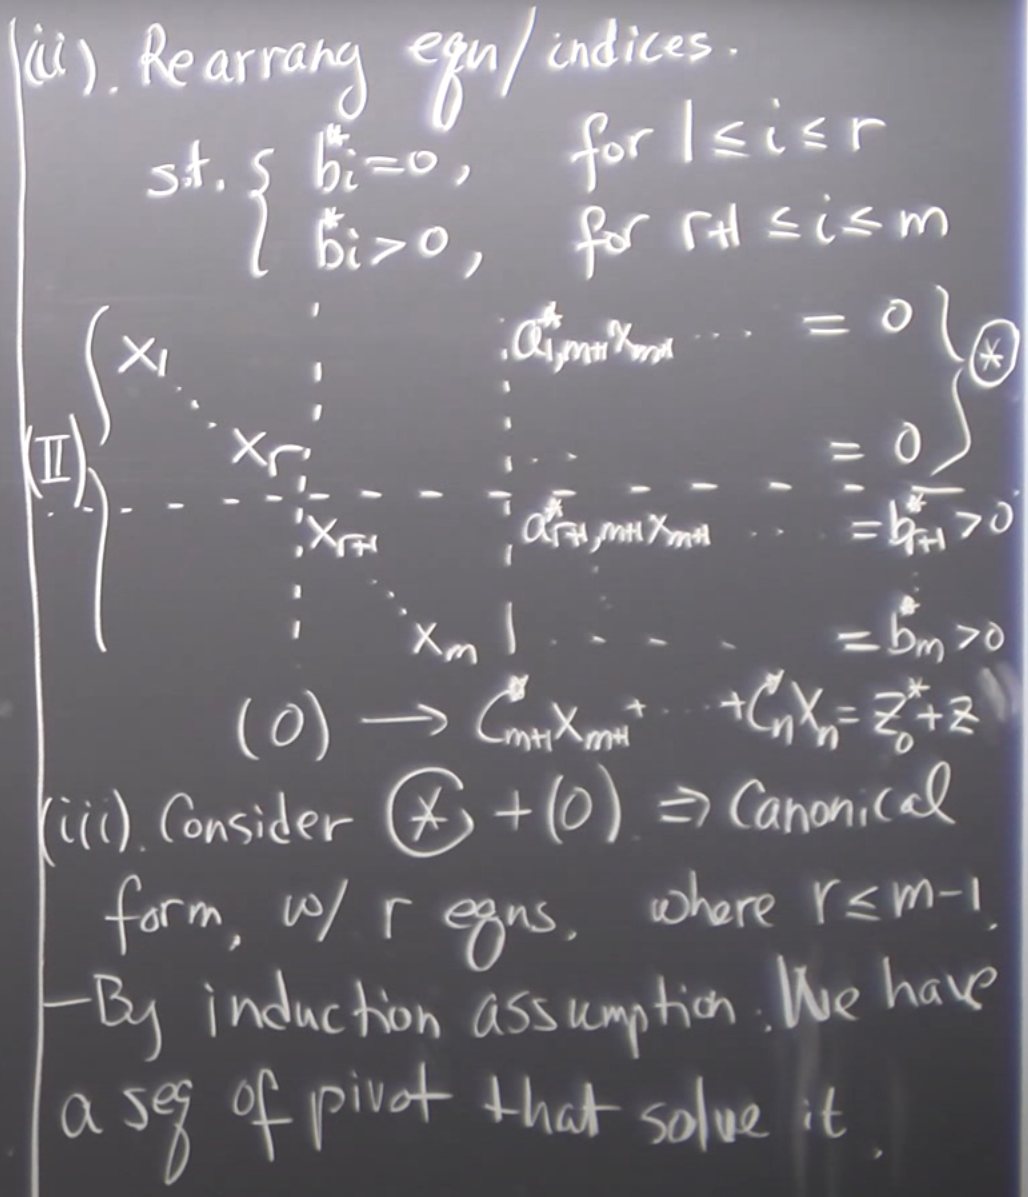 (ii). Rearrang eqn/indices.
s.t. { b*i = 0, for 1 ≤ i ≤ r
b*i > 0, for r+1 ≤ i ≤ m
x1 a*1,m+1 xm+1 ... = 0 } ⊛
(II) { xr ... = 0
xr+1 a*r+1,m+1 xm+1 ... = b*r+1 > 0
xm ... = b*m > 0
(0) → C*m+1 xm+1 + ... + C*n xn = z*0 + z
(iii). Consider ⊛ + (0) ⇒ Canonical
form, w/ r eqns, where r ≤ m-1.
- By induction assumption. We have
a seq of pivot that solve it.